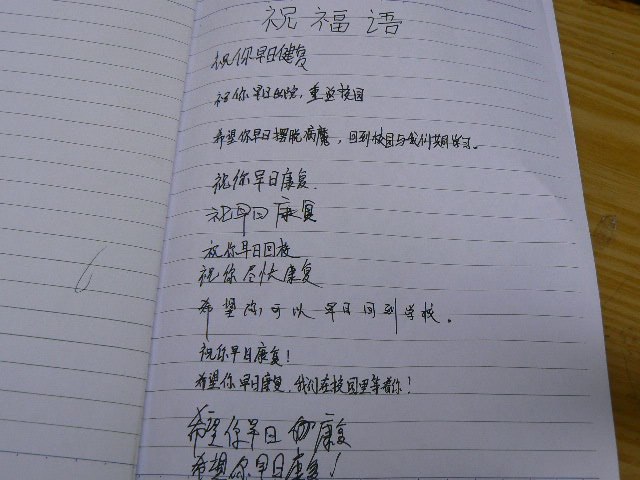 祝福语
祝你早日健复
祝你早日出院,重返校园
希望你早日摆脱病魔,回到校园与我们共同学习。
祝你早日康复.
祝早日康复
祝你早日回校
祝你尽快康复
希望你可以早日回到学校。
祝你早日康复!
希望你早日康复,我们在校园里等着你!
希望你早日康复
希望你早日康复!